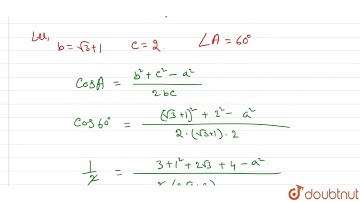 Let, b = √3+1 c = 2 ∠A = 60°
CosA = b² + c² − a² / 2bc
Cos60° = (√3+1)² + 2² − a² / 2·(√3+1)·2
1/2 = 3+1²+2√3 + 4 − a²
doubtnut